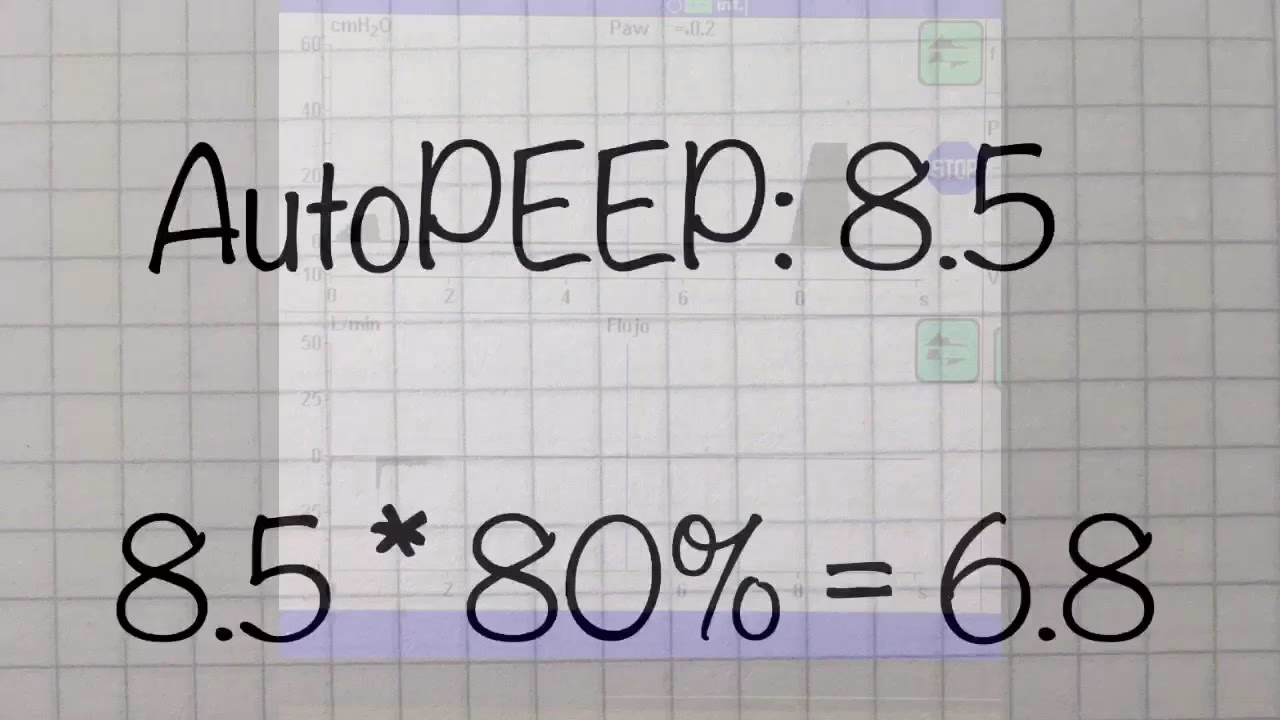 int.
cmH₂O
Paw =.0.2
60
40
AutoPEEP: 8.5
20
STOP
0
10
0 2 4 6 8 s
L/min Flujo
50
25
0
8.5 * 80% = 6.8
2 6 8 s